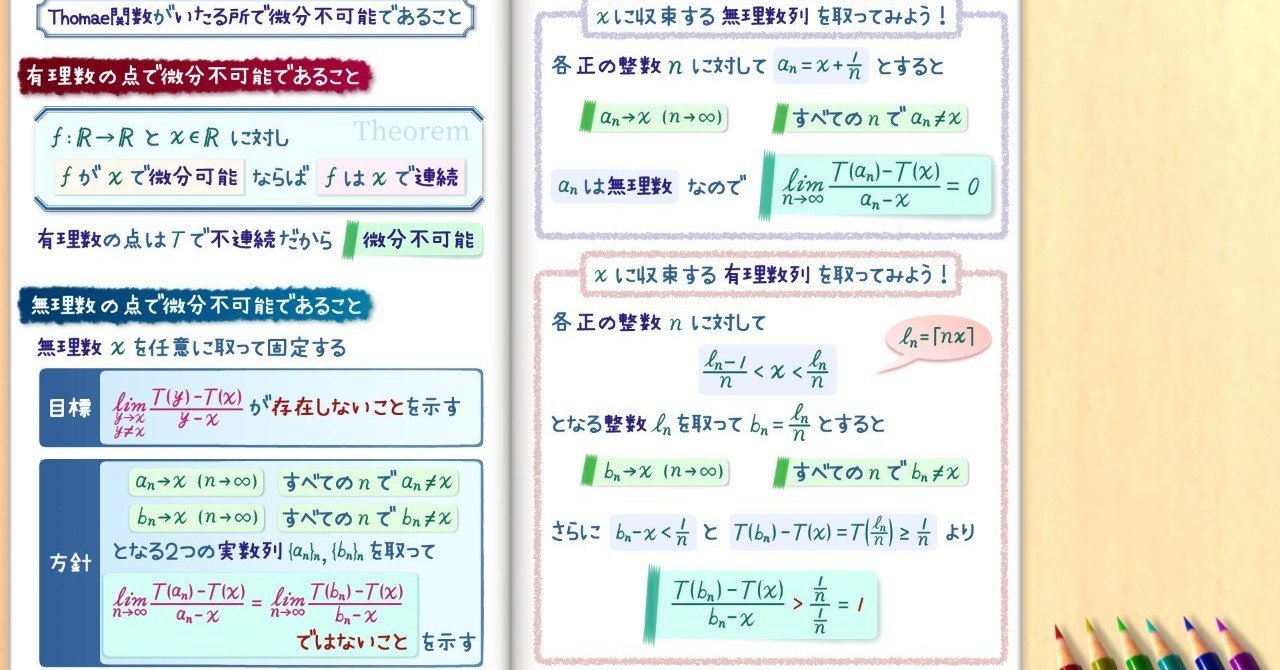 Thomae関数がいたる所で微分不可能であること
有理数の点で微分不可能であること
Theorem
f:ℝ→ℝ と x∈ℝ に対し
f が x で微分可能 ならば f は x で連続
有理数の点は T で不連続だから 微分不可能
無理数の点で微分不可能であること
無理数 x を任意に取って固定する
目標
lim_{y→x, y≠x} (T(y)-T(x))/(y-x) が存在しないことを示す
方針
aₙ→x (n→∞) すべての n で aₙ≠x
bₙ→x (n→∞) すべての n で bₙ≠x
となる2つの実数列 {aₙ}ₙ, {bₙ}ₙ を取って
lim_{n→∞} (T(aₙ)-T(x))/(aₙ-x) = lim_{n→∞} (T(bₙ)-T(x))/(bₙ-x)
ではないこと を示す
x に収束する 無理数列 を取ってみよう!
各 正の整数 n に対して aₙ=x+1/n とすると
aₙ→x (n→∞) すべての n で aₙ≠x
aₙ は無理数 なので lim_{n→∞} (T(aₙ)-T(x))/(aₙ-x) = 0
x に収束する 有理数列 を取ってみよう!
各 正の整数 n に対して
ℓₙ=⌈nx⌉
(ℓₙ-1)/n < x < ℓₙ/n
となる整数 ℓₙ を取って bₙ=ℓₙ/n とすると
bₙ→x (n→∞) すべての n で bₙ≠x
さらに bₙ-x<1/n と T(bₙ)-T(x)=T(ℓₙ/n)≥1/n より
(T(bₙ)-T(x))/(bₙ-x) > (1/n)/(1/n) = 1